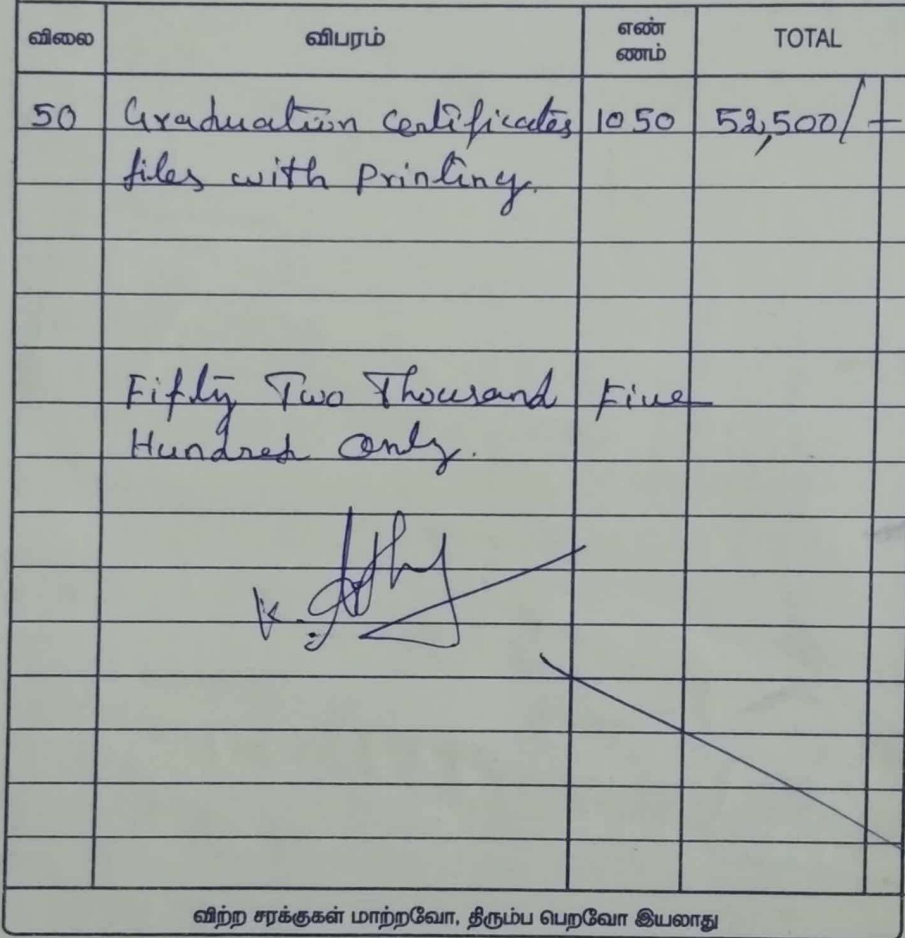 விலை விபரம் எண்ணம் TOTAL
50 Graduation Certificates 1050 52,500/-
files with Printing.
Fifty Two Thousand Five
Hundred Only.
விற்ற சரக்குகள் மாற்றவோ, திரும்ப பெறவோ இயலாது